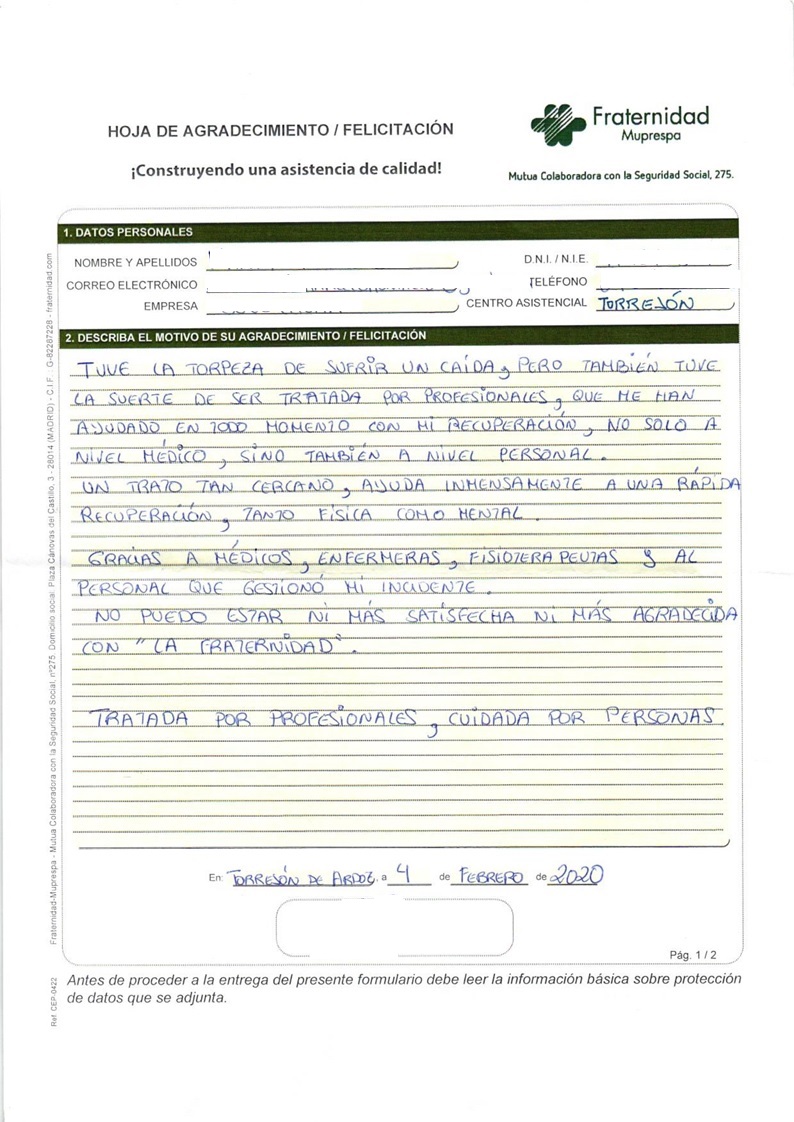 HOJA DE AGRADECIMIENTO / FELICITACIÓN
¡Construyendo una asistencia de calidad!
Fraternidad
Muprespa
Mutua Colaboradora con la Seguridad Social, 275.
1. DATOS PERSONALES
NOMBRE Y APELLIDOS
D.N.I. / N.I.E.
CORREO ELECTRÓNICO
TELÉFONO
EMPRESA
CENTRO ASISTENCIAL TORREJÓN
2. DESCRIBA EL MOTIVO DE SU AGRADECIMIENTO / FELICITACIÓN
TUVE LA TORPEZA DE SUFRIR UN CAÍDA, PERO TAMBIÉN TUVE
LA SUERTE DE SER TRATADA POR PROFESIONALES, QUE ME HAN
AYUDADO EN TODO MOMENTO CON MI RECUPERACIÓN, NO SOLO A
NIVEL MÉDICO, SINO TAMBIÉN A NIVEL PERSONAL.
UN TRATO TAN CERCANO, AYUDA INMENSAMENTE A UNA RÁPIDA
RECUPERACIÓN, TANTO FÍSICA COMO MENTAL.
GRACIAS A MÉDICOS, ENFERMERAS, FISIOTERAPEUTAS Y AL
PERSONAL QUE GESTIONÓ MI INCIDENTE.
NO PUEDO ESTAR NI MÁS SATISFECHA NI MÁS AGRADECIDA
CON "LA FRATERNIDAD".
TRATADA POR PROFESIONALES, CUIDADA POR PERSONAS
En: TORREJÓN DE ARDOZ, a 4 de FEBRERO de 2020
Pág. 1 / 2
Antes de proceder a la entrega del presente formulario debe leer la información básica sobre protección
de datos que se adjunta.
Fraternidad-Muprespa - Mutua Colaboradora con la Seguridad Social, nº275. Domicilio social: Plaza Cánovas del Castillo, 3 - 28014 (MADRID) - C.I.F.: G-82287228 - fraternidad.com
Ref. CEP-0422